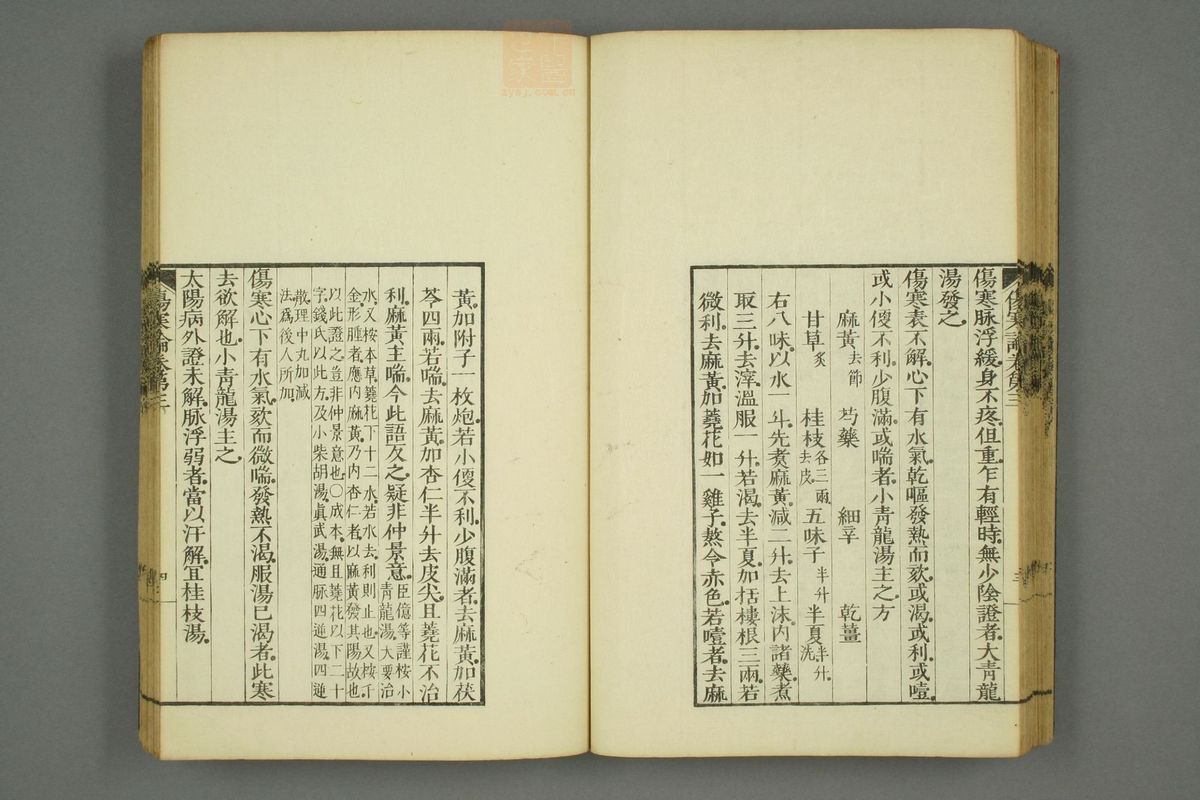 傷寒脉浮緩。身不疼。但重。乍有輕時。無少陰證者。大青龍
湯發之。
傷寒表不解。心下有水氣。乾嘔發熱而欬。或渴。或利。或噎。
或小便不利。少腹滿。或喘者。小青龍湯主之。方
麻黃去節 芍藥 細辛 乾薑
甘草炙 桂枝各三兩。去皮 五味子半升 半夏半升。洗
右八味。以水一斗。先煑麻黃。減二升。去上沫。內諸藥。煑
取三升。去滓。溫服一升。若渴。去半夏。加栝樓根三兩。若
微利。去麻黃。加蕘花如一雞子。熬令赤色。若噎者。去麻
黃。加附子一枚。炮。若小便不利。少腹滿者。去麻黃。加茯
苓四兩。若喘。去麻黃。加杏仁半升。去皮尖。且蕘花不治
利。麻黃主喘。今此語反之。疑非仲景意。臣億等謹桉。小
青龍湯。大要治
水。又桉本草。蕘花下十二水。若水去。利則止也。又桉。千
金。形腫者。應內麻黃。乃內杏仁者。以麻黃發其陽故也。
以此證之。豈非仲景意也。〇成本。無且蕘花以下二十
字。錢氏以此方。及小柴胡湯。眞武湯。通脉四逆湯。四逆
散。理中丸。加減
法。爲後人所加。
傷寒心下有水氣。欬而微喘。發熱不渴。服湯已渴者。此寒
去欲解也。小青龍湯主之。
太陽病。外證未解。脉浮弱者。當以汗解。宜桂枝湯。
傷寒論卷第三
三
傷寒論卷第三
四
zysj.com.cn